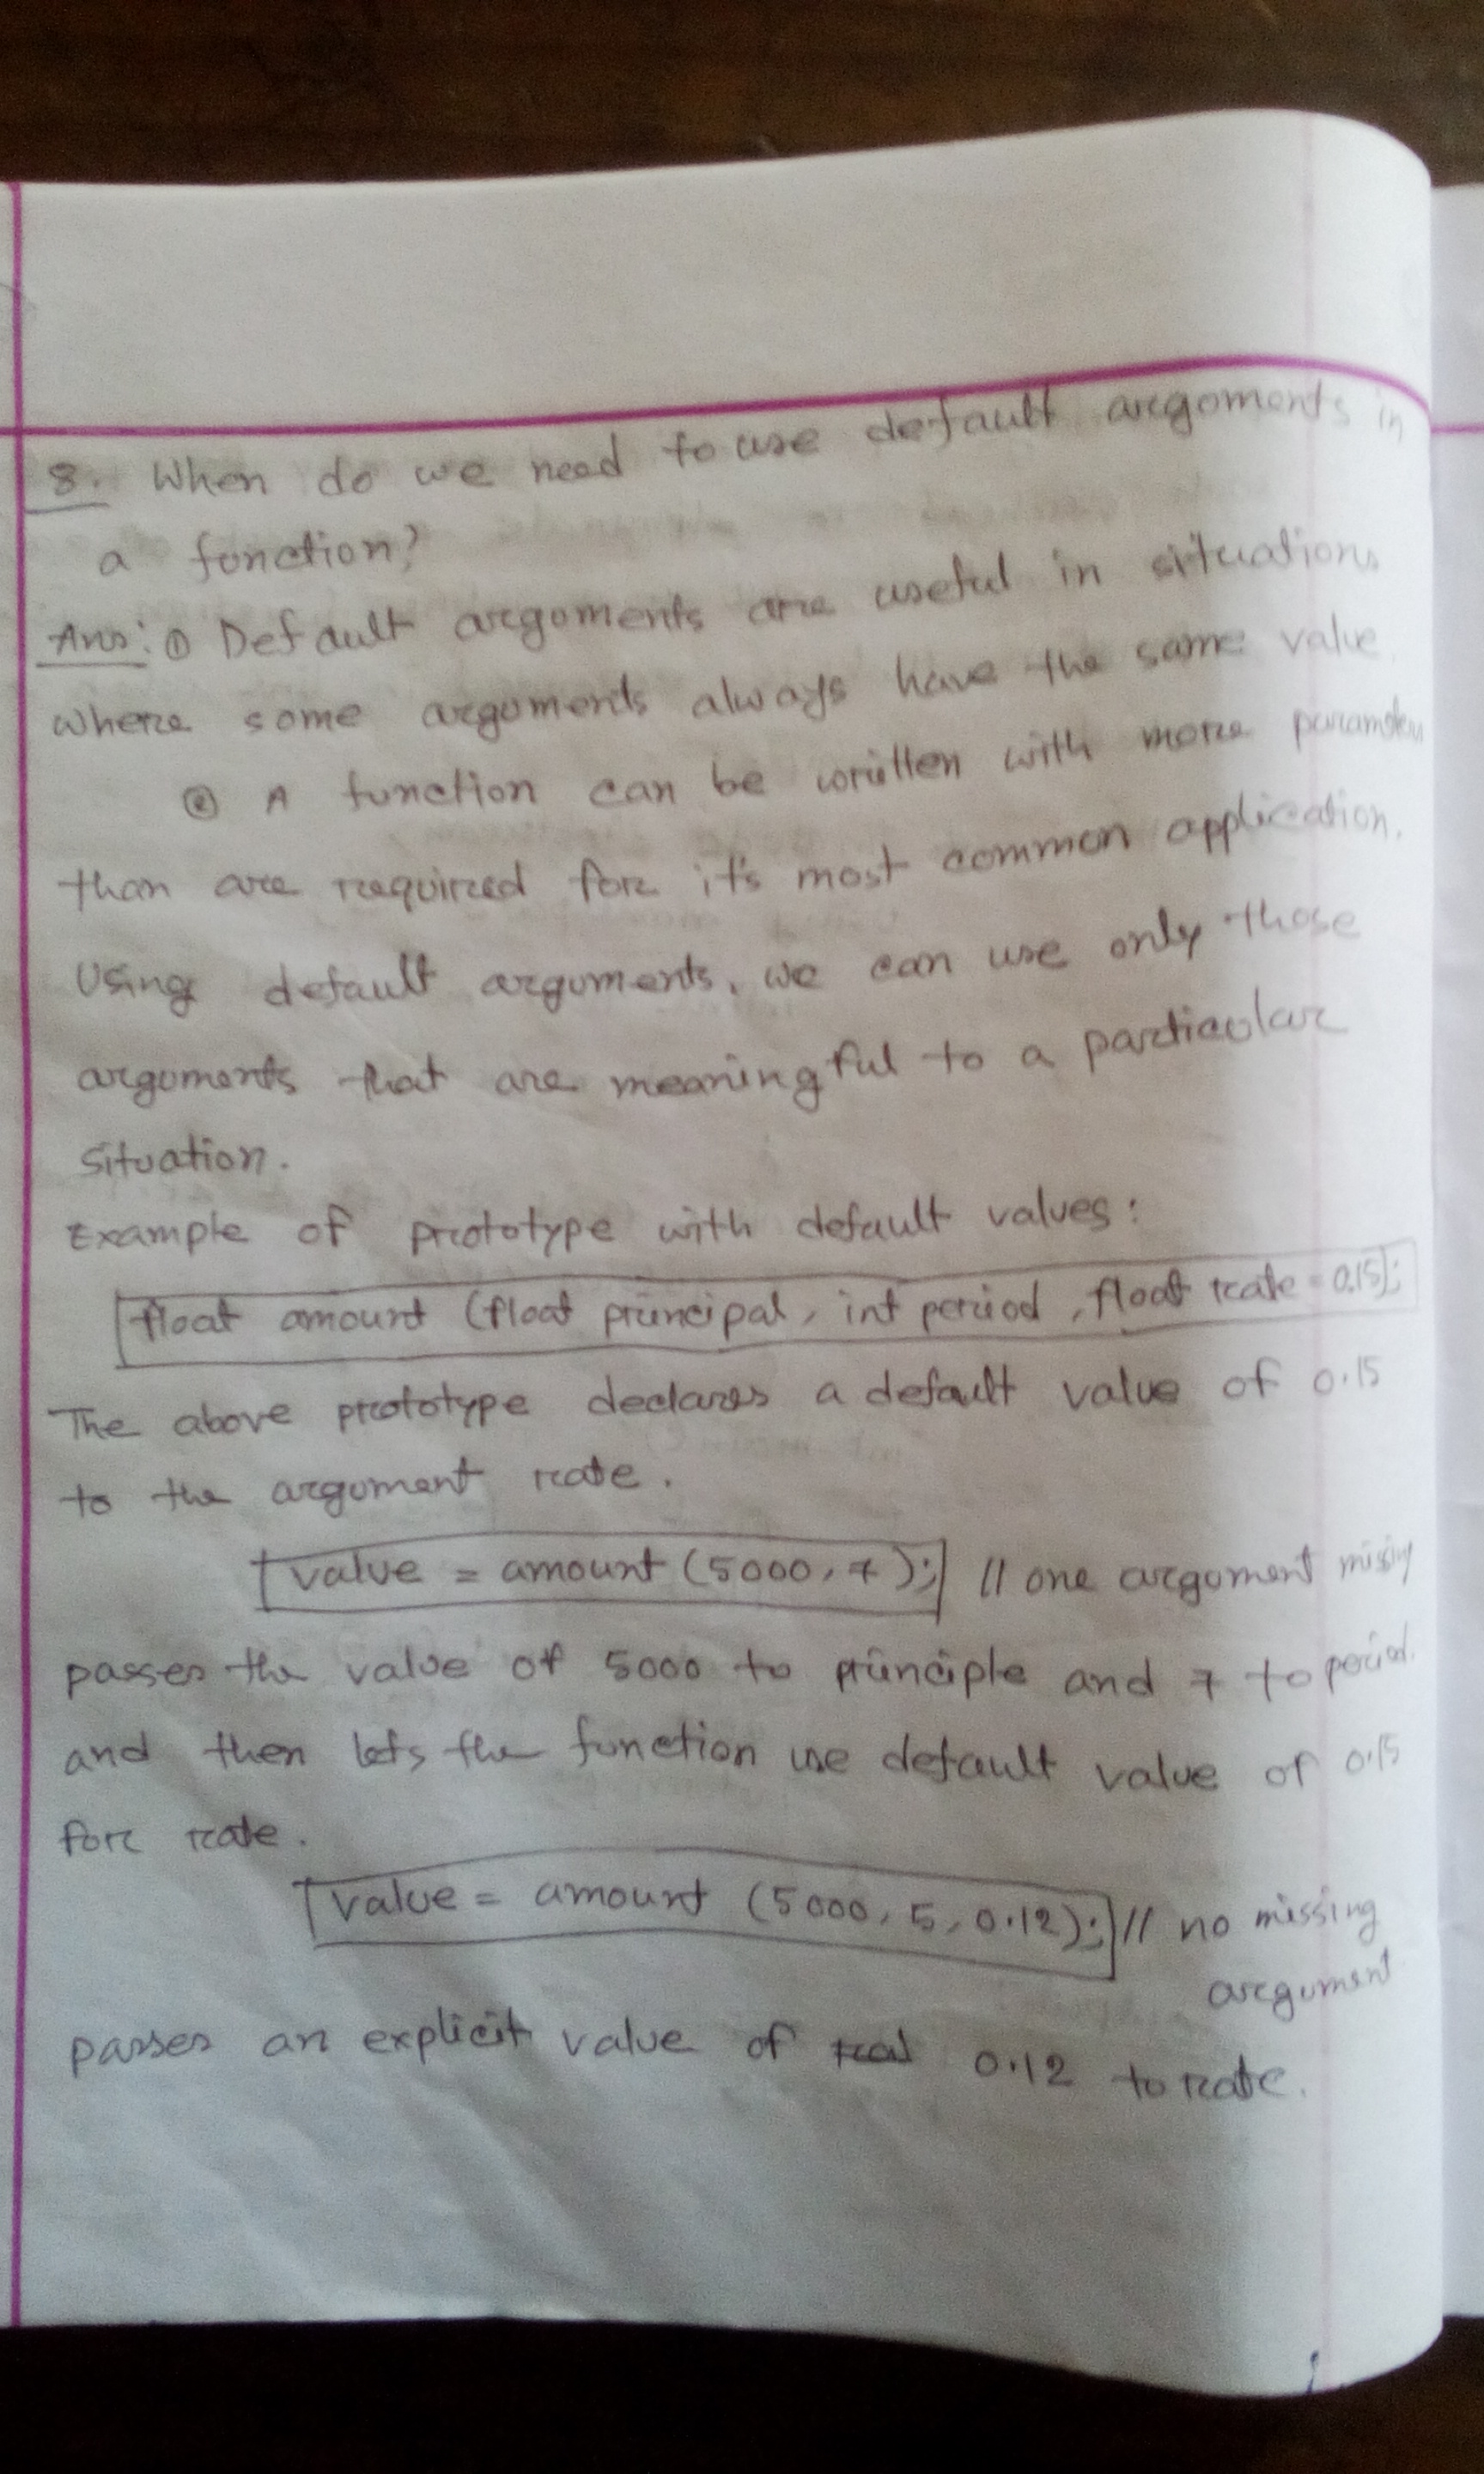 8. When do we need to use default argoments in
a function?
Ans: ① Default argoments are useful in situations
where some arguments always have the same value.
② A function can be written with more parameters
than are required for it's most common application.
Using default arguments, we can use only those
argoments that are meaningful to a particular
situation.
Example of prototype with default values:
float amount (float principal, int period, float rate = 0.15);
The above prototype declares a default value of 0.15
to the argument rate.
value = amount (5000, 7); // one argument missing
passes the value of 5000 to principle and 7 to period.
and then lets the function use default value of 0.15
for rate.
value = amount (5000, 5, 0.12); // no missing
argument
passes an explicit value of 0.12 to rate.